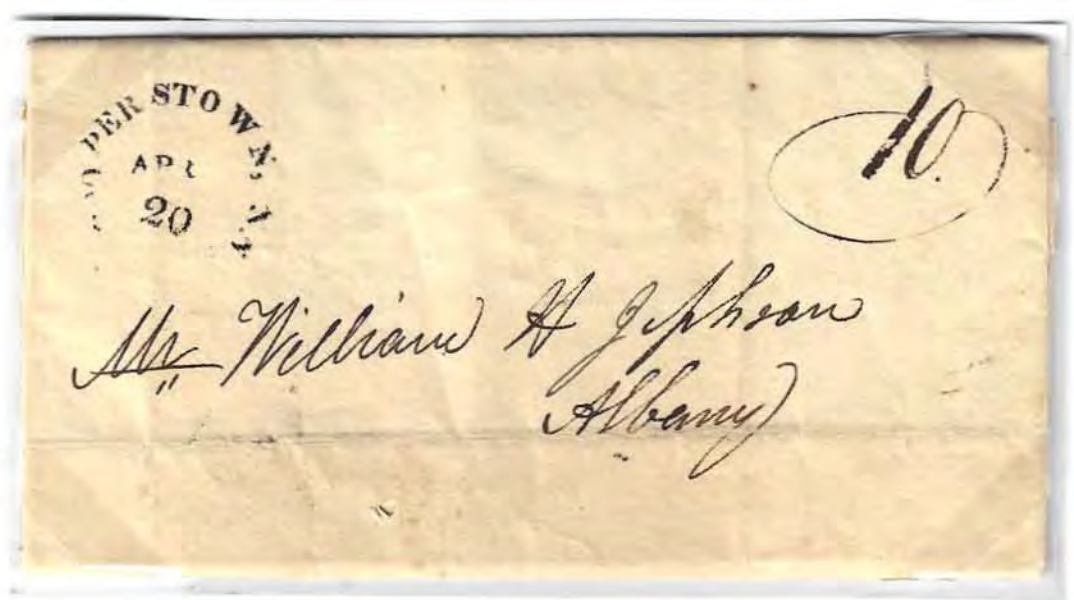 COOPERSTOWN, N.Y
APR
20
10.
Mr William H Jephson
Albany